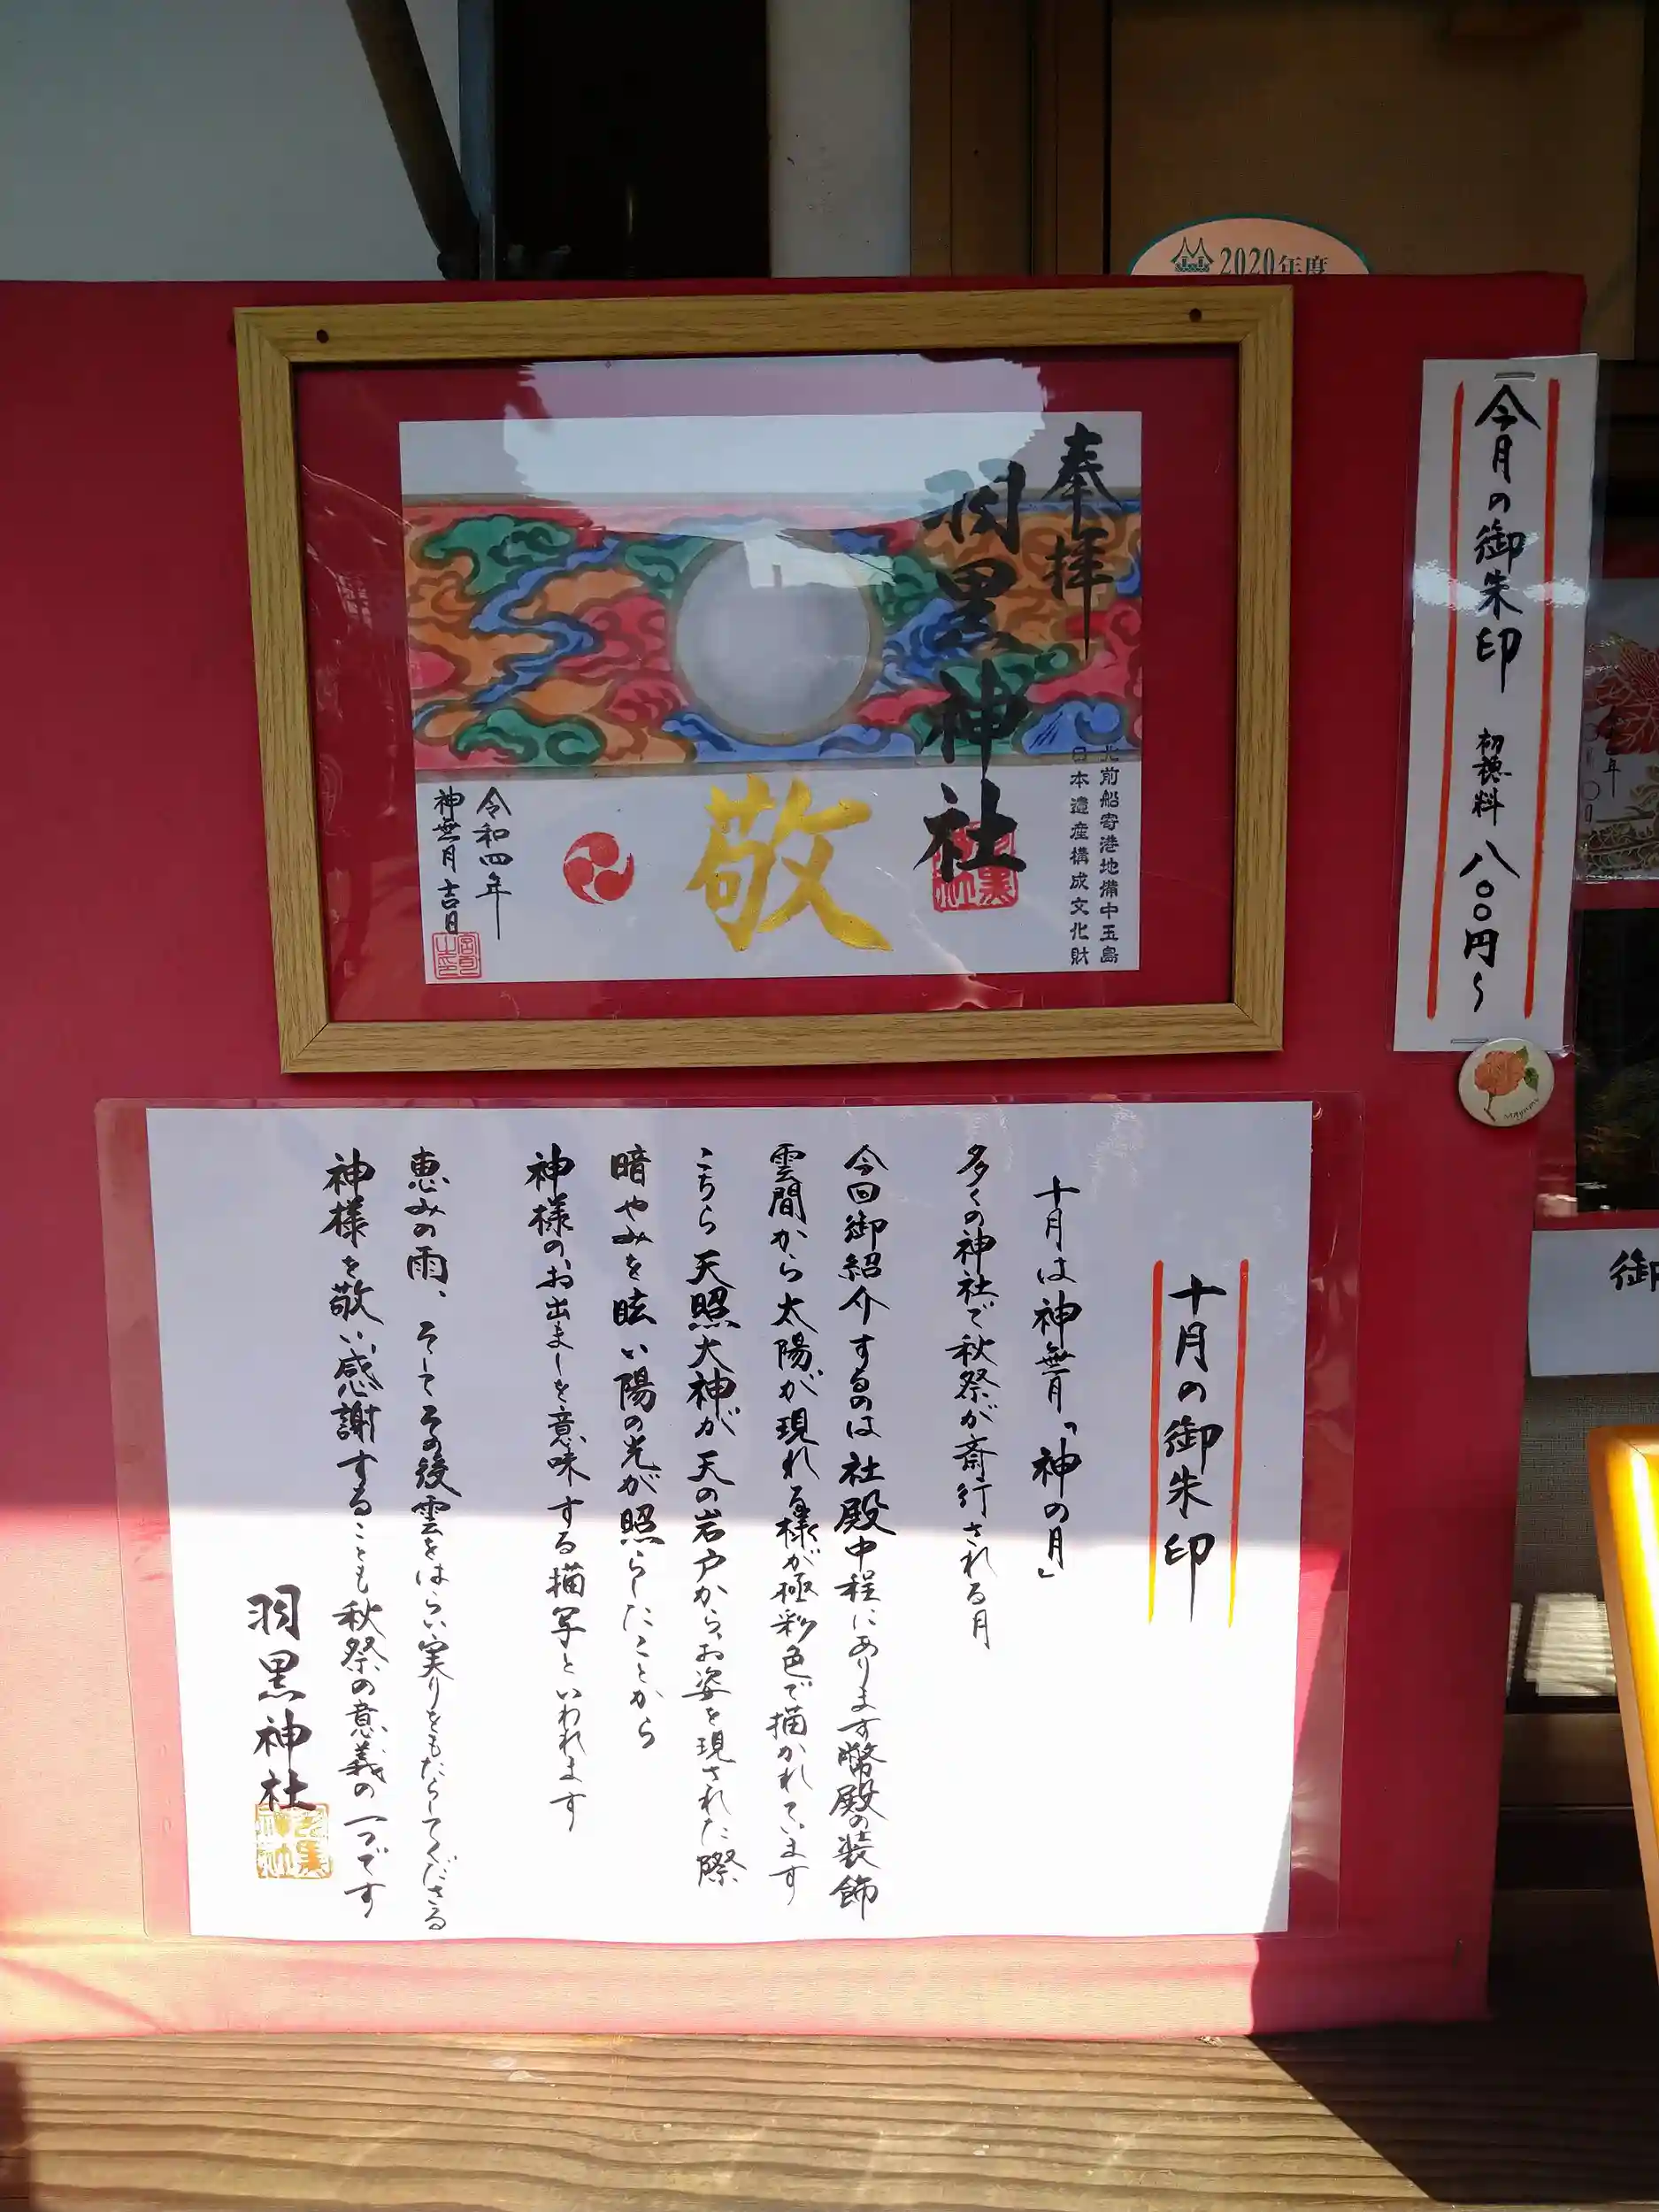 2020年度
今月の御朱印 初穂料 八〇〇円〜
奉拝
羽黒神社
北前船寄港地備中玉島
日本遺産構成文化財
敬
令和四年
神無月吉日
十月の御朱印
十月は神無月「神の月」
多くの神社で秋祭が斎行される月
今回御紹介するのは社殿中程にあります幣殿の装飾
雲間から太陽が現れる様が極彩色で描かれています
こちら天照大神が天の岩戸から、お姿を現された際
暗やみを眩い陽の光が照らしたことから
神様の、お出ましを意味する描写といわれます
恵みの雨、そしてその後雲をはらい実りをもたらしてくださる
神様を敬い感謝することも秋祭の意義の一つです
羽黒神社
御